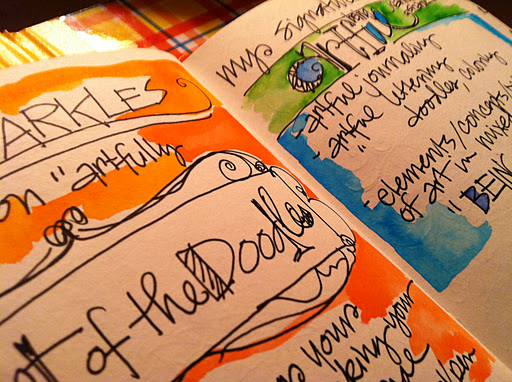 ARKLE
on "artfully
of the Doodle
up your
king your
my signature
Artful
- artful journaling
- artful listening
doodles, coloring
- elements/concepts/
of art in mixed
" BEING